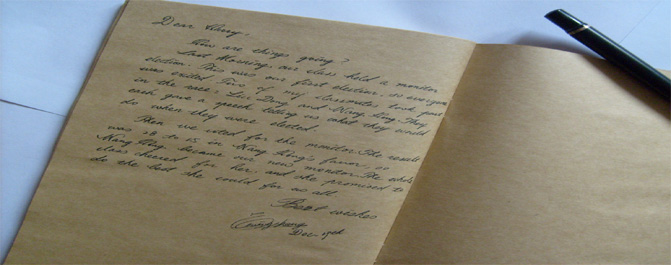 Dear
How are things going?
Last Morning, our class held a monitor
election. This was our first election, so everyone
was exited. Two of my classmates took part
in the race: Liu Dong and Wang Ling. They
each gave a speech telling us what they would
do when they were elected.
Then we voted for the monitor. The result
was 28 to 15 in Wang Ling's favor, so
Wang Ling became our new monitor. The whole
class cheered for her, and she promised to
do the best she could for us all.
Best wishes
Dec. 17th